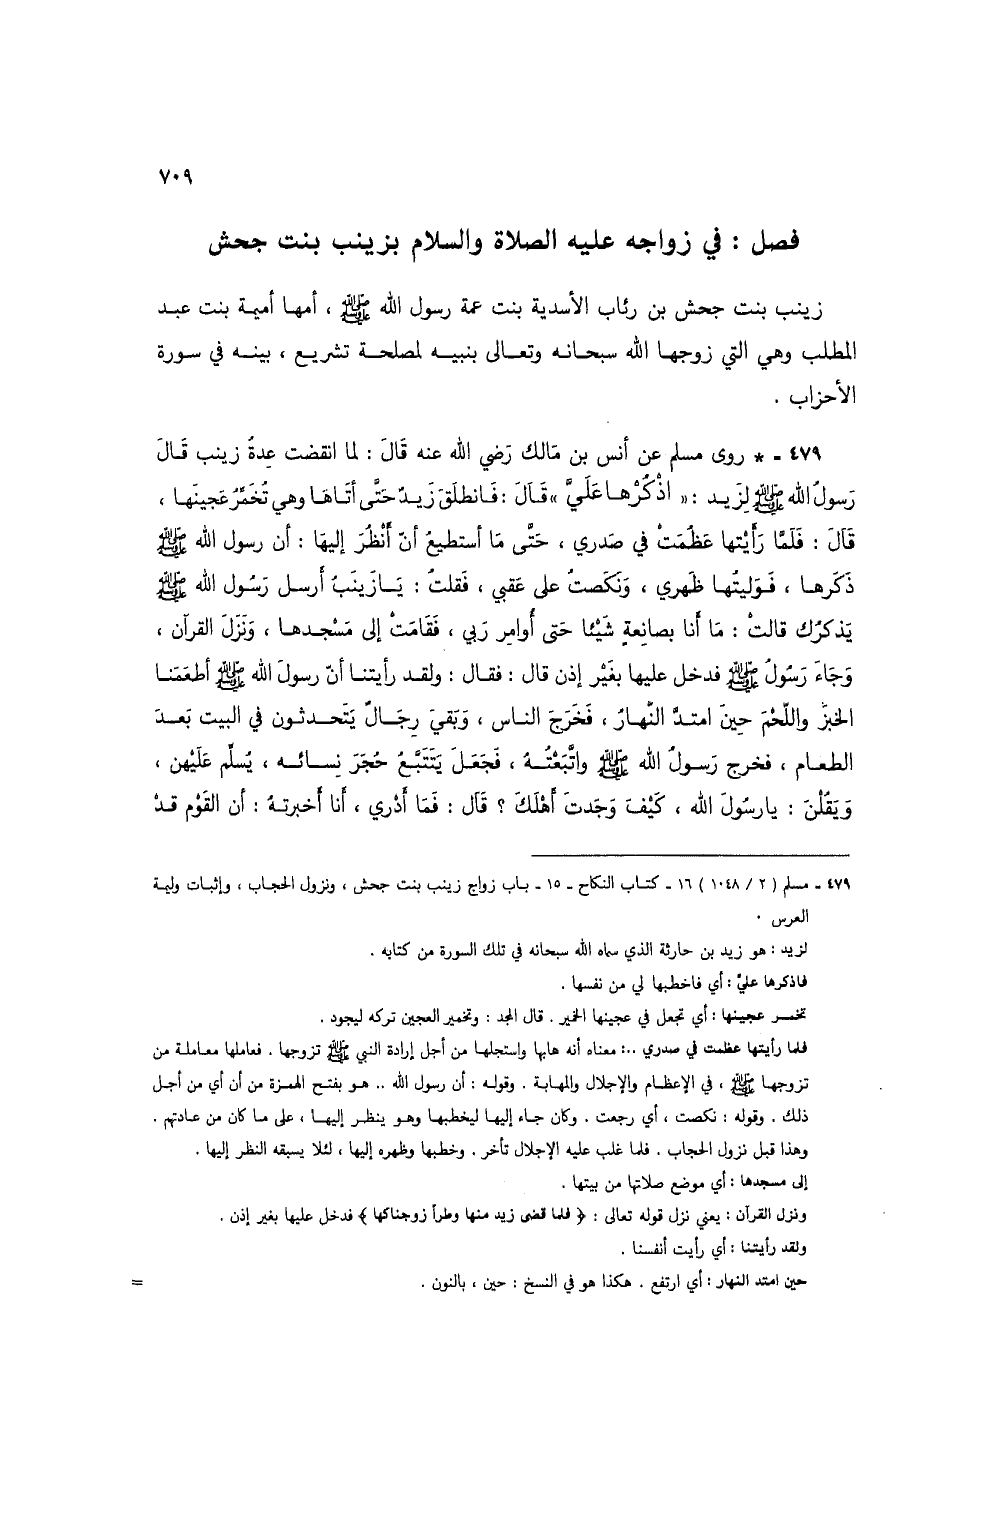 ٧٠٩
فصل : في زواجه عليه الصلاة والسلام بزينب بنت جحش
زينب بنت جحش بن رئاب الأسدية بنت عمة رسول الله ﷺ ، أمها أميمة بنت عبد
المطلب وهي التي زوجها الله سبحانه وتعالى بنبيه لمصلحة تشريع ، بينه في سورة
الأحزاب .
٤٧٩ - * روى مسلم عن أنس بن مَالك رَضي الله عنه قَالَ : لما انقضت عِدةُ زينب قَالَ
رَسولُ الله ﷺ لِزَيد : « اذْكُرْهَا عَلَيَّ » قَالَ : فَانطلَقَ زَيدٌ حَتَّى أتَاهَا وهي تُخَمِّرُ عَجينَها ،
قَالَ : فَلَمَّا رَأَيْتها عَظُمَتْ في صَدري ، حَتَّى مَا أستطيعُ أنّ أَنْظُرَ إليهَا : أن رسول الله ﷺ
ذَكَرها ، فَوَليتُها ظَهري ، وَنَكَصتُ على عَقبي ، فَقلتُ : يَازَينَبُ أرسل رَسُول الله ﷺ
يَذكرُك قالتْ : مَا أنا بصانعةٍ شَيْئا حَتى أُوامِر رَبي ، فَقَامَتْ إلى مَسْجدها ، وَنَزَلَ القرآن ،
وَجَاءَ رَسُولُ ﷺ فدخل عليها بغَيْر إذن قال : فقال : ولقد رأيتنا أنّ رسولَ الله ﷺ أطعَمَنا
الخبزَ واللَّحْمَ حِينَ امتدَّ النَّهارُ ، فَخَرَجَ الناس ، وَبَقيَ رجَالٌ يَتَحدثون في البيت بَعدَ
الطعام ، فخرج رَسولُ الله ﷺ واتَّبَعْتُهُ ، فَجَعَلَ يَتَتَبَّعُ حُجَرَ نِسائه ، يُسلّم عَلَيْهن ،
وَيَقُلْنَ : يارسُولَ الله ، كَيْفَ وَجَدتَ أَهْلَكَ ؟ قَال : فَمَا أدْري ، أنا أخبرتهُ : أن القَوْم قدْ
٤٧٩ - مسلم ( ٢ / ١٠٤٨ ) ١٦ - كتاب النكاح - ١٥ - باب زواج زينب بنت جحش ، ونزول الحجاب ، وإثبات وليمة
العرس .
لزيد : هو زيد بن حارثة الذي سماه الله سبحانه في تلك السورة من كتابه .
فاذكرها عليّ : أي فاخطبها لي من نفسها .
تخمـر عجينها : أي تجعل في عجينها الخمير . قال المجد : وتخمير العجين تركه ليجود .
فلما رأيتها عظمت في صدري .. : معناه أنه هابها واستجلها من أجل إرادة النبي ﷺ تزوجها . فعاملها معاملة من
تزوجها ﷺ ، في الإعظام والإجلال والمهابة . وقوله : أن رسول الله .. هو بفتح الهمزة من أن أي من أجل
ذلك . وقوله : نكصت ، أي رجعت . وكان جاء إليها ليخطبها وهو ينظر إليها ، على ما كان من عادتهم .
وهذا قبل نزول الحجاب . فلما غلب عليه الإجلال تأخر . وخطبها وظهره إليها ، لئلا يسبقه النظر إليها .
إلى مسجدها : أي موضع صلاتها من بيتها .
ونزل القرآن : يعني نزل قوله تعالى : ﴿ فلما قضى زيد منها وطراً زوجناكها ﴾ فدخل عليها بغير إذن .
ولقد رأيتنا : أي رأيت أنفسنا .
حين امتد النهار : أي ارتفع . هكذا هو في النسخ : حين ، بالنون . =